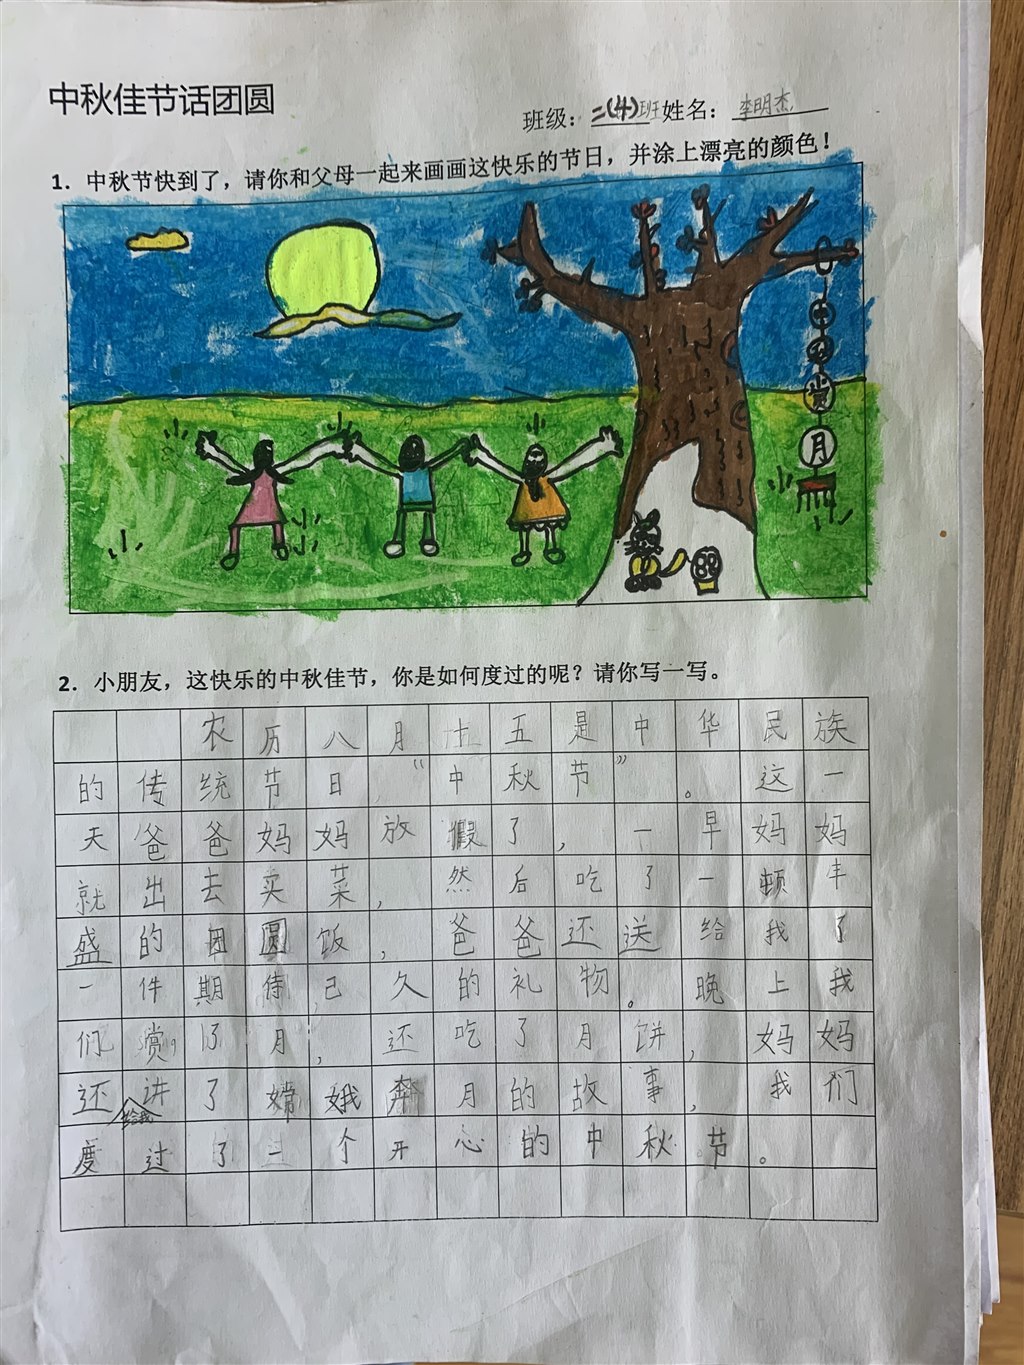 中秋佳节话团圆
班级：二(4)班 姓名：李明杰
1．中秋节快到了，请你和父母一起来画画这快乐的节日，并涂上漂亮的颜色！
中
秋
赏
月
2．小朋友，这快乐的中秋佳节，你是如何度过的呢？请你写一写。
农历八月十五是中华民族
的传统节日，“中秋节”。这一
天爸爸妈妈放假了，一早妈妈
就出去买菜，然后吃了一顿丰
盛的团圆饭，爸爸还送给我了
一件期待已久的礼物。晚上我
们赏了月，还吃了月饼，妈妈
还给我讲了嫦娥奔月的故事，我们
度过了一个开心的中秋节。